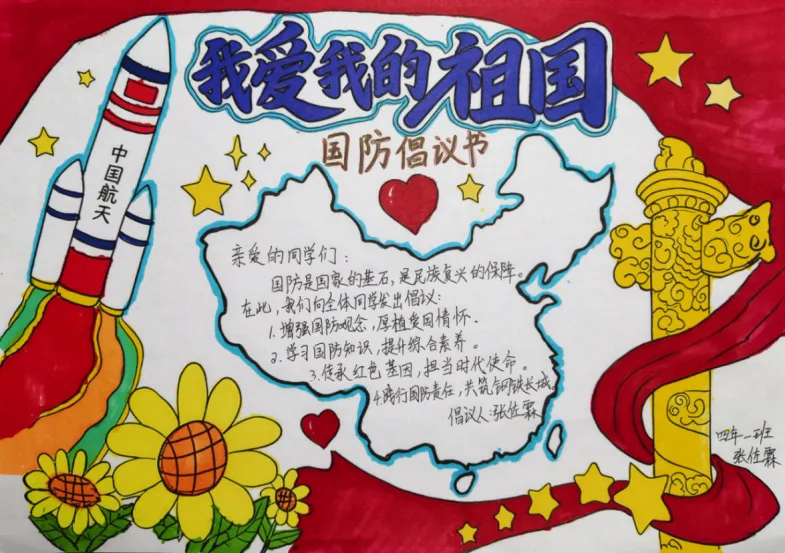 我爱我的祖国
国防倡议书
中国航天
亲爱的同学们：
国防是国家的基石，是民族复兴的保障。
在此，我们向全体同学发出倡议：
1.增强国防观念，厚植爱国情怀.
2.学习国防知识，提升综合素养。
3.传承红色基因，担当时代使命。
4.践行国防责任，共筑钢铁长城。
倡议人：张佐霖
四年一班
张佐霖